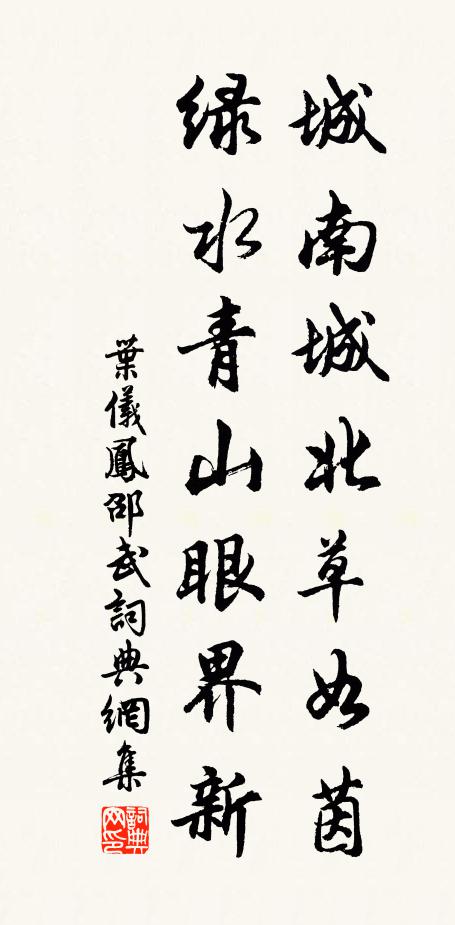 城南城北草如茵
緑水青山眼界新
葉儀鳳邵武詞典網集
詞典网印